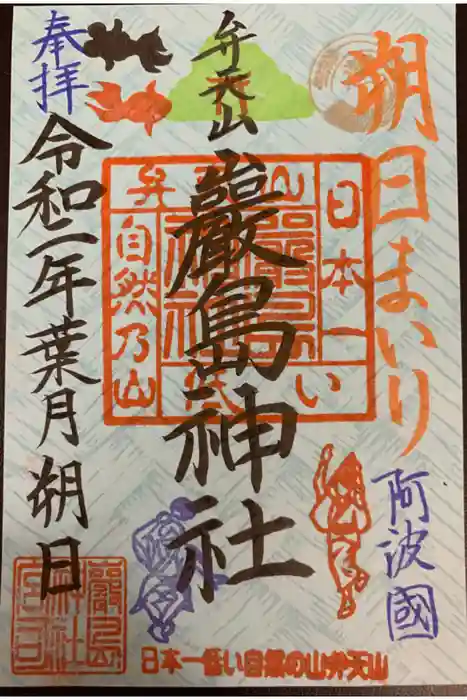 朔日まいり
阿波國
弁天山
巖島神社
奉拝
令和二年葉月朔日
弁天山
日本一
低い
自然乃山
嚴島神社
嚴島
神社
宮司
日本一低い自然の山弁天山